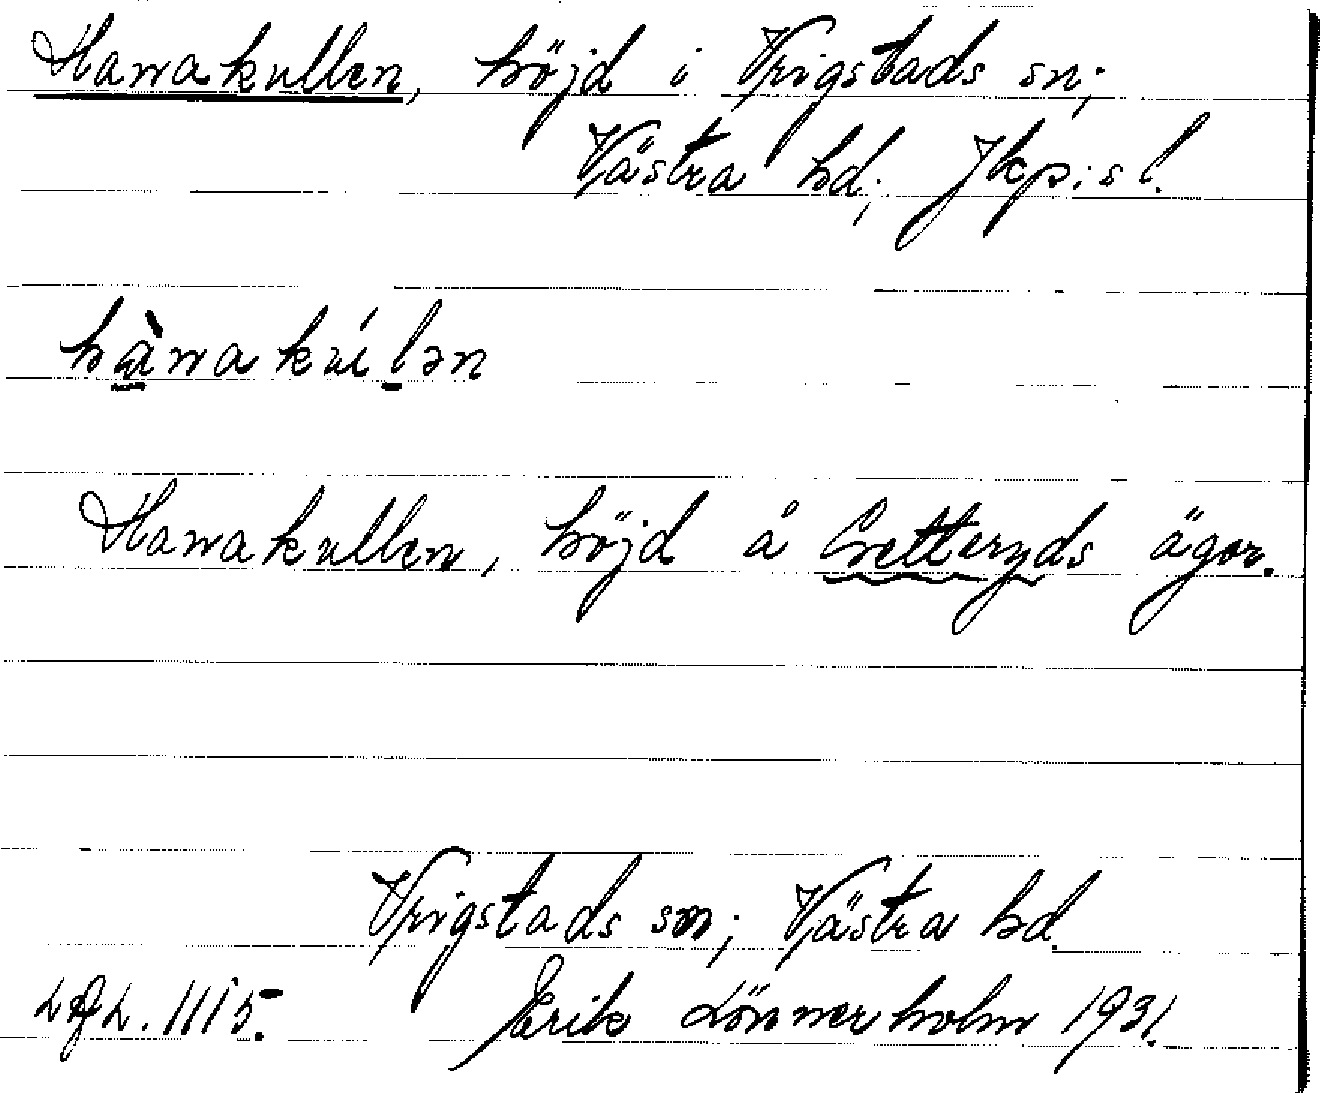 Hanakullen, höjd i Vrigstads sn;
Västra hd; Jkp:s l.
hànakúlən
Hanakullen, höjd å ägor.
Vrigstads sn; Västra hd.
1115. Erik Lönnerholm 1931.